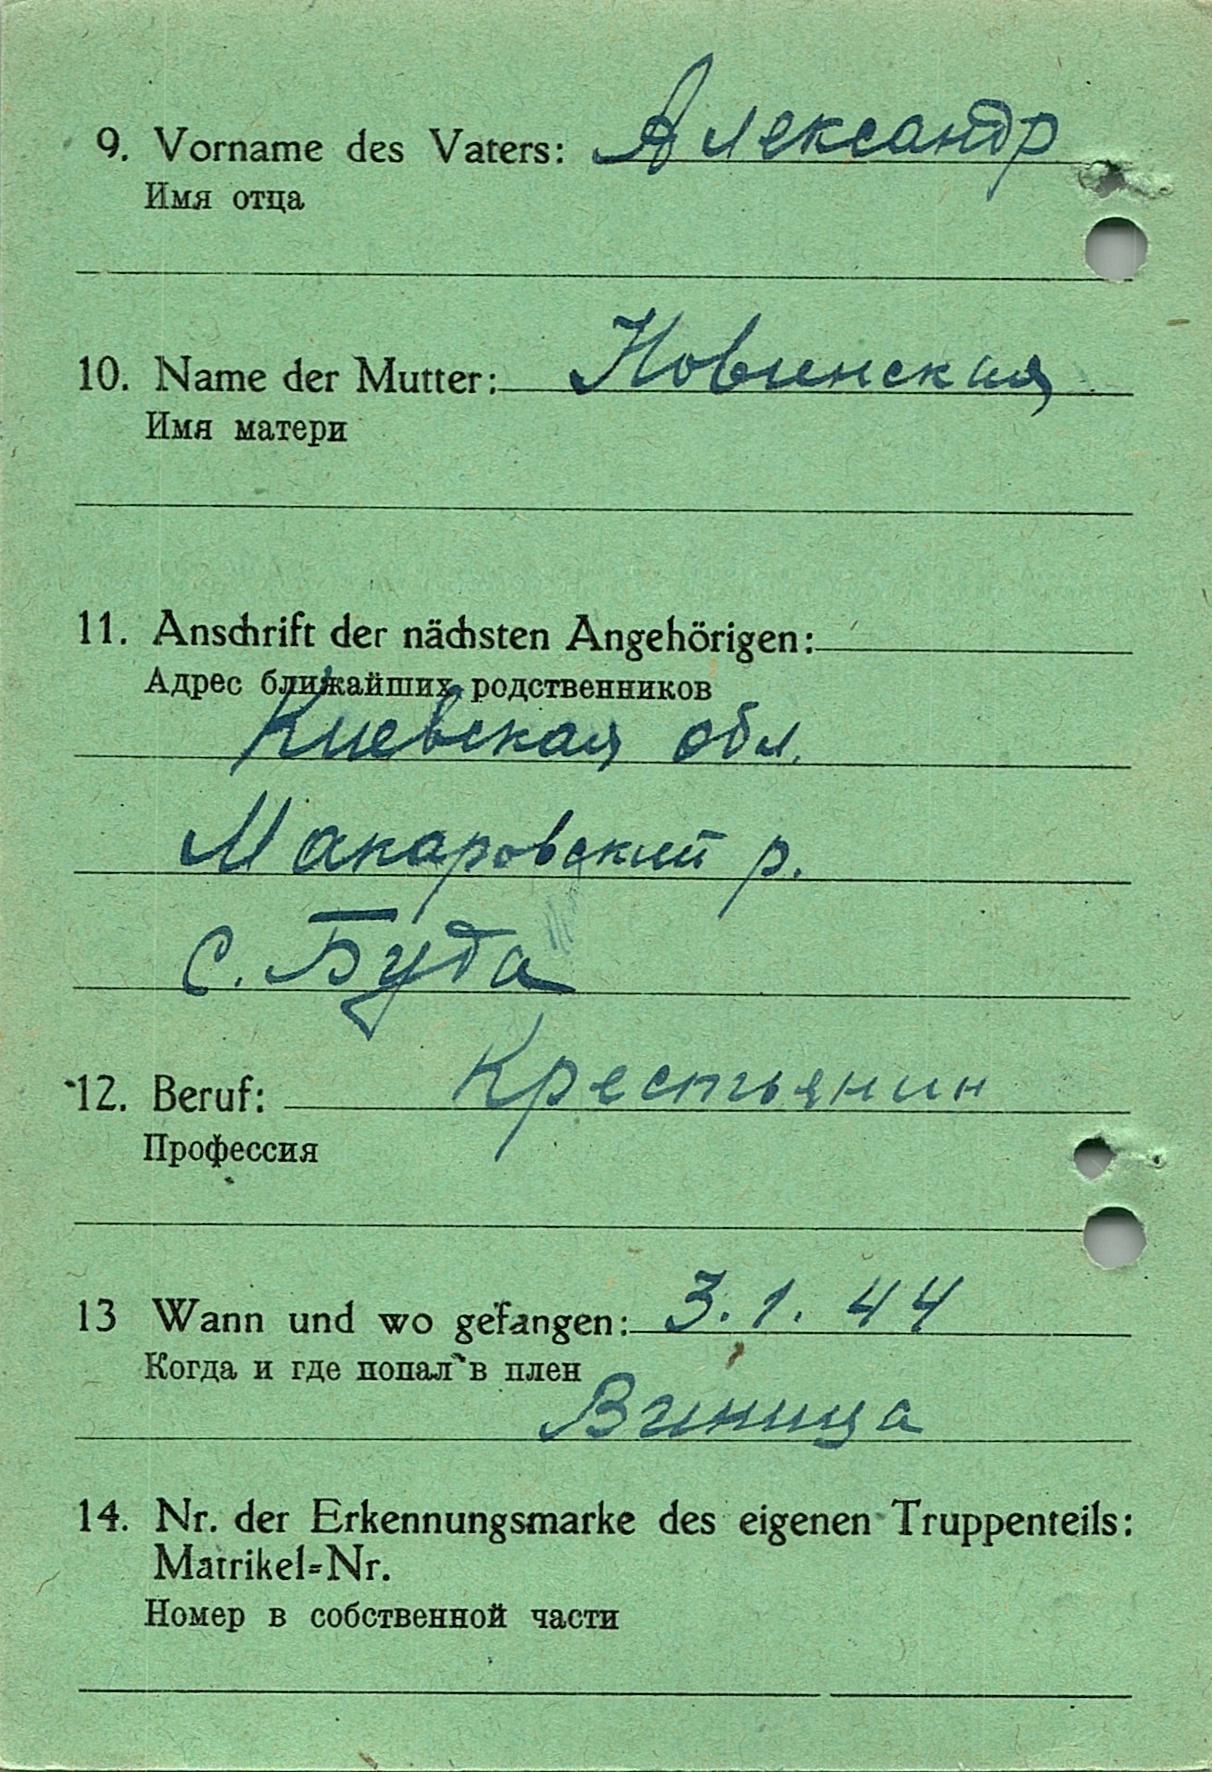 9. Vorname des Vaters: Александр
Имя отца
10. Name der Mutter: Новинская
Имя матери
11. Anschrift der nächsten Angehörigen:
Адрес ближайших родственников
Киевская обл.
Макаровский р.
с. Буда
12. Beruf: Крестьянин
Профессия
13 Wann und wo gefangen: 3.1.44
Когда и где попал в плен
Виница
14. Nr. der Erkennungsmarke des eigenen Truppenteils:
Matrikel=Nr.
Номер в собственной части